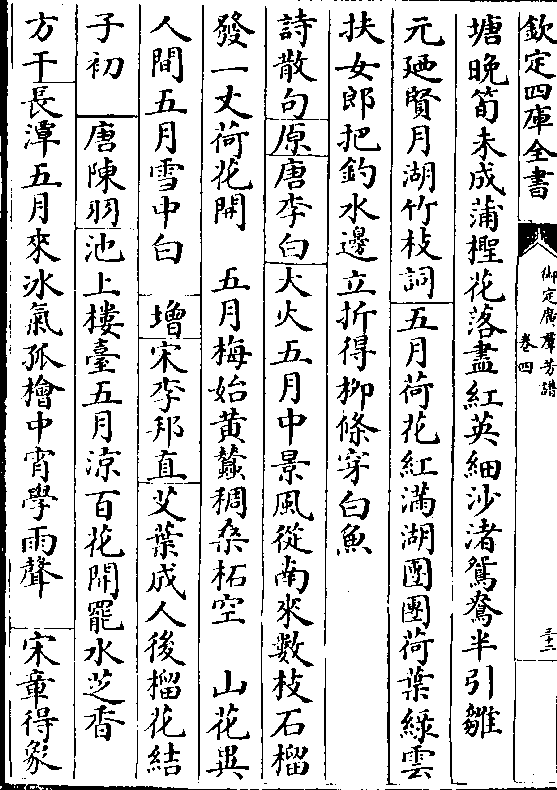 欽定四庫全書
御定廣羣芳譜
卷四
三十三
塘晚筍未成蒲檉花落盡紅英細沙渚鴛鴦半引雛
元廼賢月湖竹枝詞 五月荷花紅滿湖團團荷葉綠雲
扶女郎把釣水邊立折得柳條穿白魚
詩散句原唐李白 大火五月中景風從南來數枝石榴
發一丈荷花開 五月梅始黃蠶稠桑柘空 山花異
人間五月雪中白 增宋李邦直 艾葉成人後榴花結
子初 唐陳羽 池上樓臺五月涼百花開罷水芝香
方干 長潭五月來冰氣孤檜中宵學雨聲 宋章得象